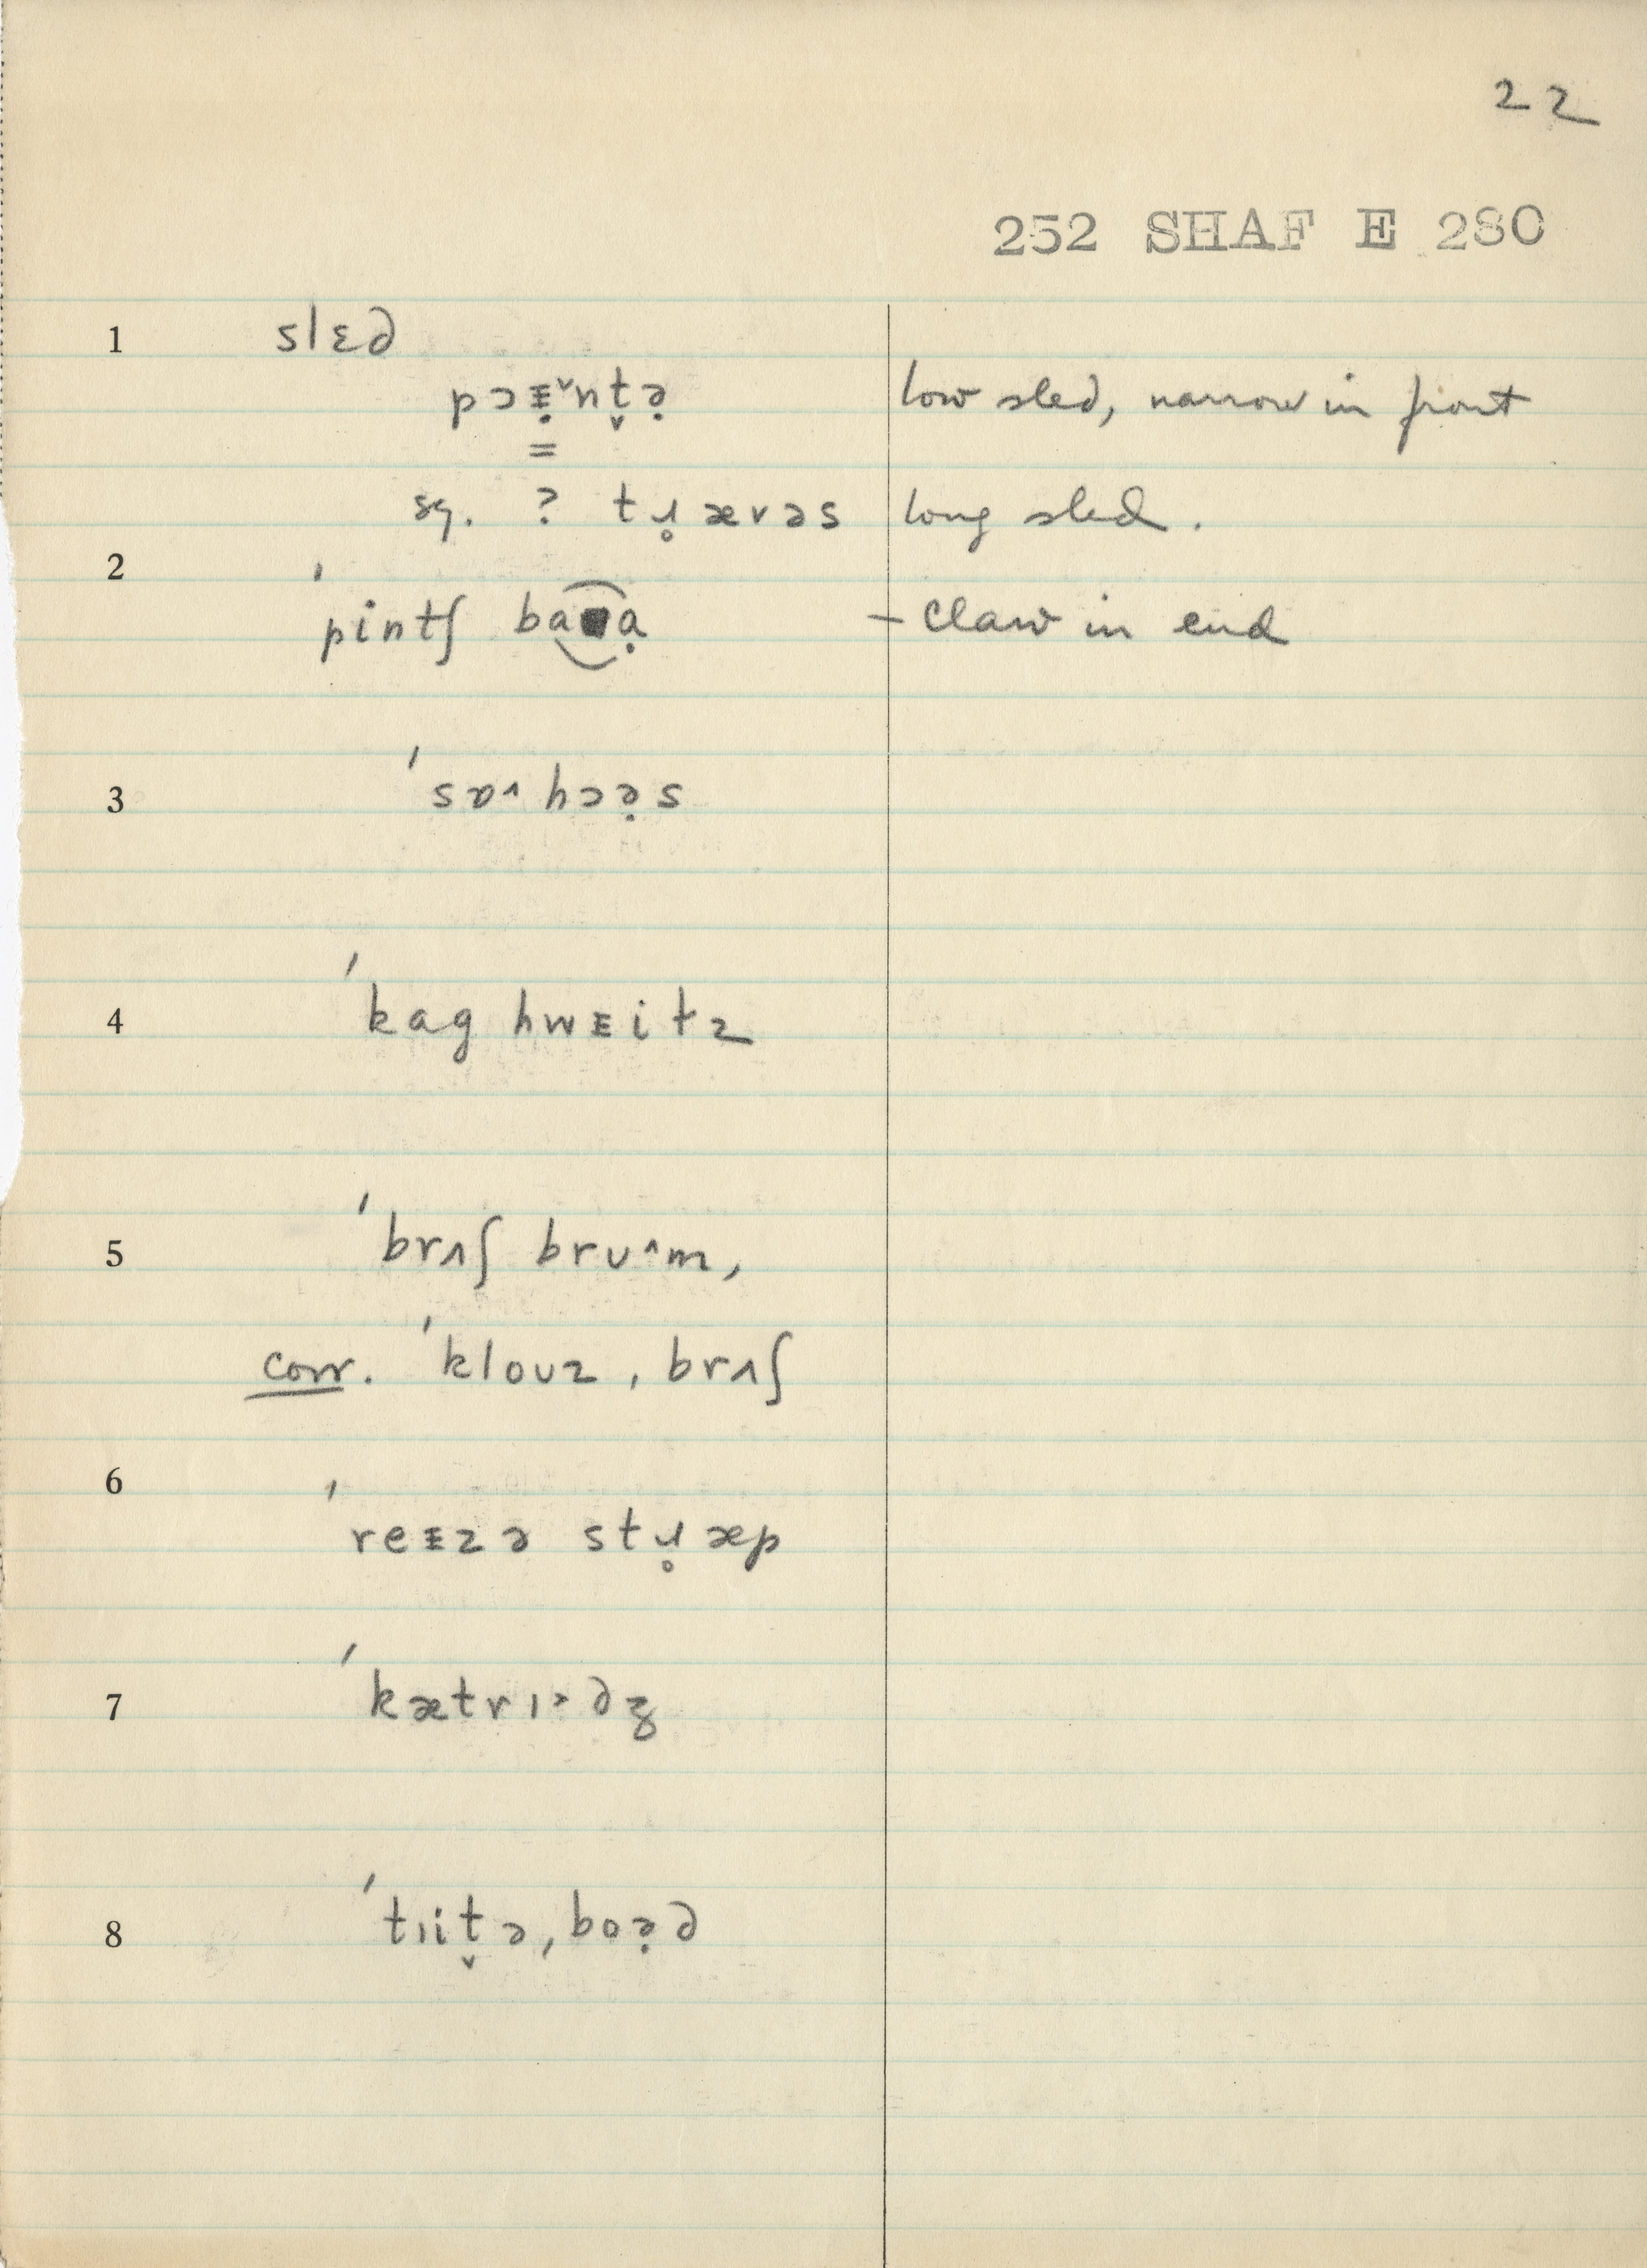 22
252 SHAF E 280
1 slɛd
pɔᵻ̣ˇnt̬ə̣ low sled, narrow in front
=
sg. ? tɹ̥ævəs long sled.
2 ˈpintʃ baạ - claw in end
3 ˈsɒ˄hɔə̣s
4 ˈkag hwᴇitz
5 ˈbrʌʃ brʊ˄m,
corr. ˈkloʊz, brʌʃ
6 ˈreᵻzə stɹ̥æp
7 ˈkætrɪ˃dʒ
8 ˈtɪit̬ə, boə̣d